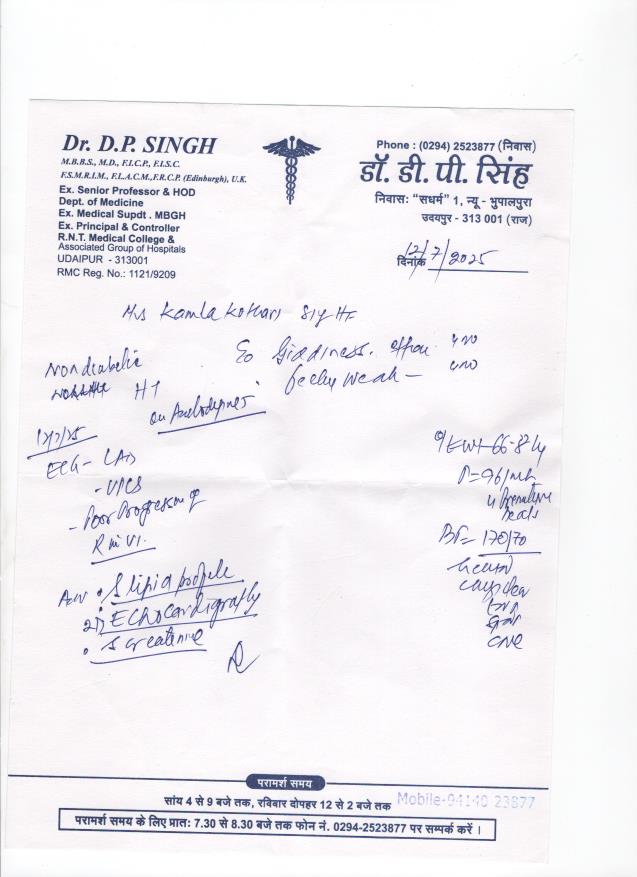 Dr. D.P. SINGH
M.B.B.S., M.D., F.I.C.P., F.I.S.C.
F.S.M.R.I.M., F.L.A.C.M.,F.R.C.P. (Edinburgh), U.K.
Ex. Senior Professor & HOD
Dept. of Medicine
Ex. Medical Supdt . MBGH
Ex. Principal & Controller
R.N.T. Medical College &
Associated Group of Hospitals
UDAIPUR - 313001
RMC Reg. No.: 1121/9209
Phone : (0294) 2523877 (निवास)
डॉ. डी. पी. सिंह
निवास: "सधर्म" 1, न्यू - भुपालपुरा
उदयपुर - 313 001 (राज)
दिनांक 12/7/2025
Mrs Kamla Kothari
Giddiness.
Non diabetic
HT
feeling weak
on Amlodepine
12/7/25
ECG - LAD
- VPCS
- Poor Progression of
R in V1.
Adv • S lipid profile
2D ECHocardiography
• S creatinine
P = 96/mt
Premature
beats
BP = 170/70
परामर्श समय
सांय 4 से 9 बजे तक, रविबार दोपहर 12 से 2 बजे तक
Mobile-94140 23877
परामर्श समय के लिए प्रात: 7.30 से 8.30 बजे तक फोन नं. 0294-2523877 पर सम्पर्क करें ।